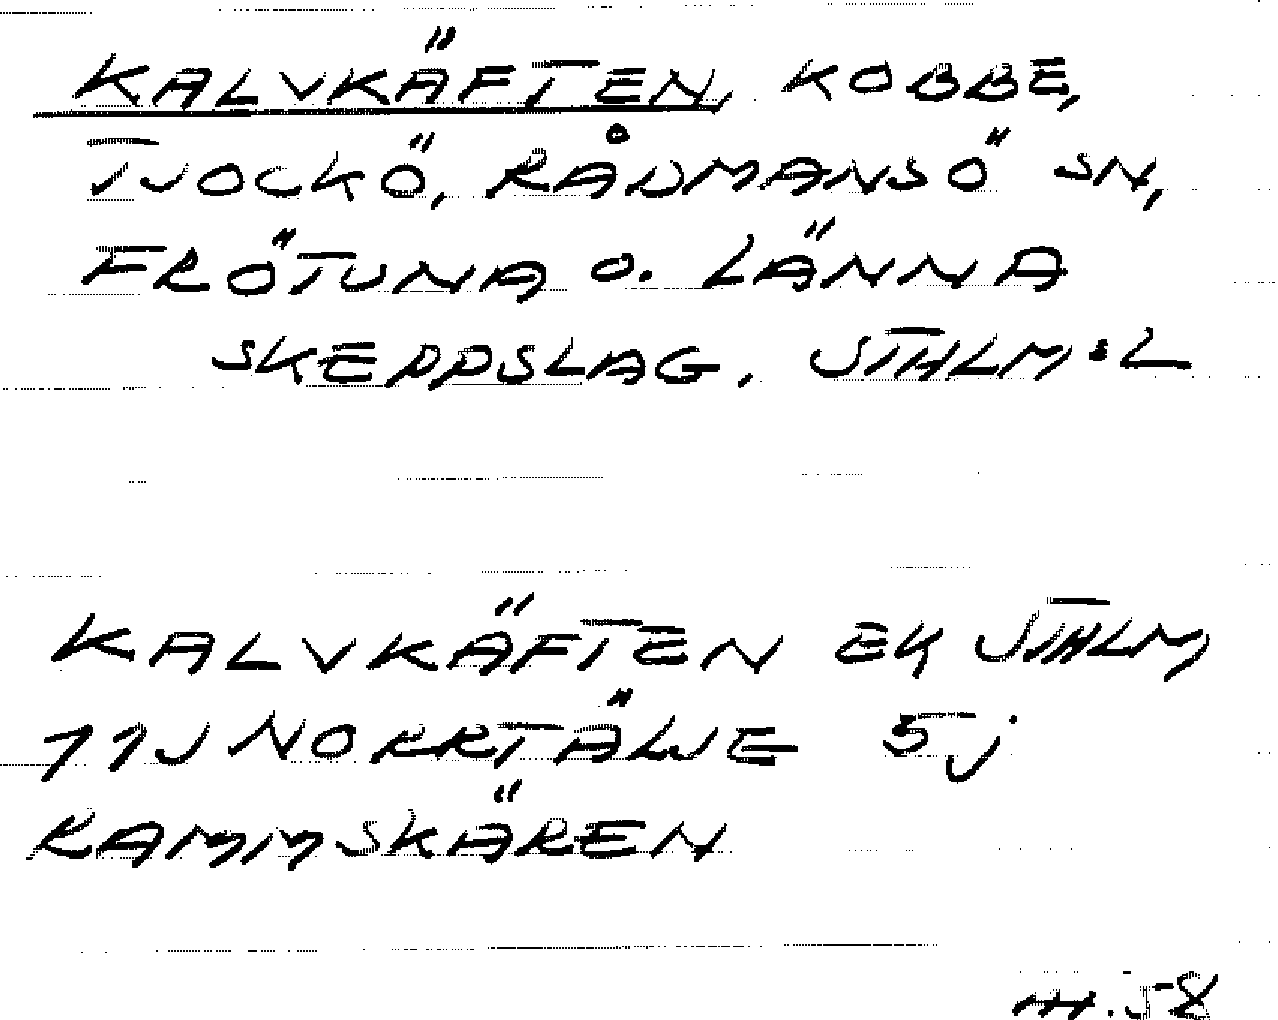 KALVKÄFTEN, KOBBE,
TJOCKÖ, RÅDMANSÖ SN,
FRÖTUNA O. LÄNNA
SKEPPSLAG, STHLM:L
KALVKÄFTEN EK STHLM
11J NORRTÄLJE 5j
RAMMSKÄREN
H.58